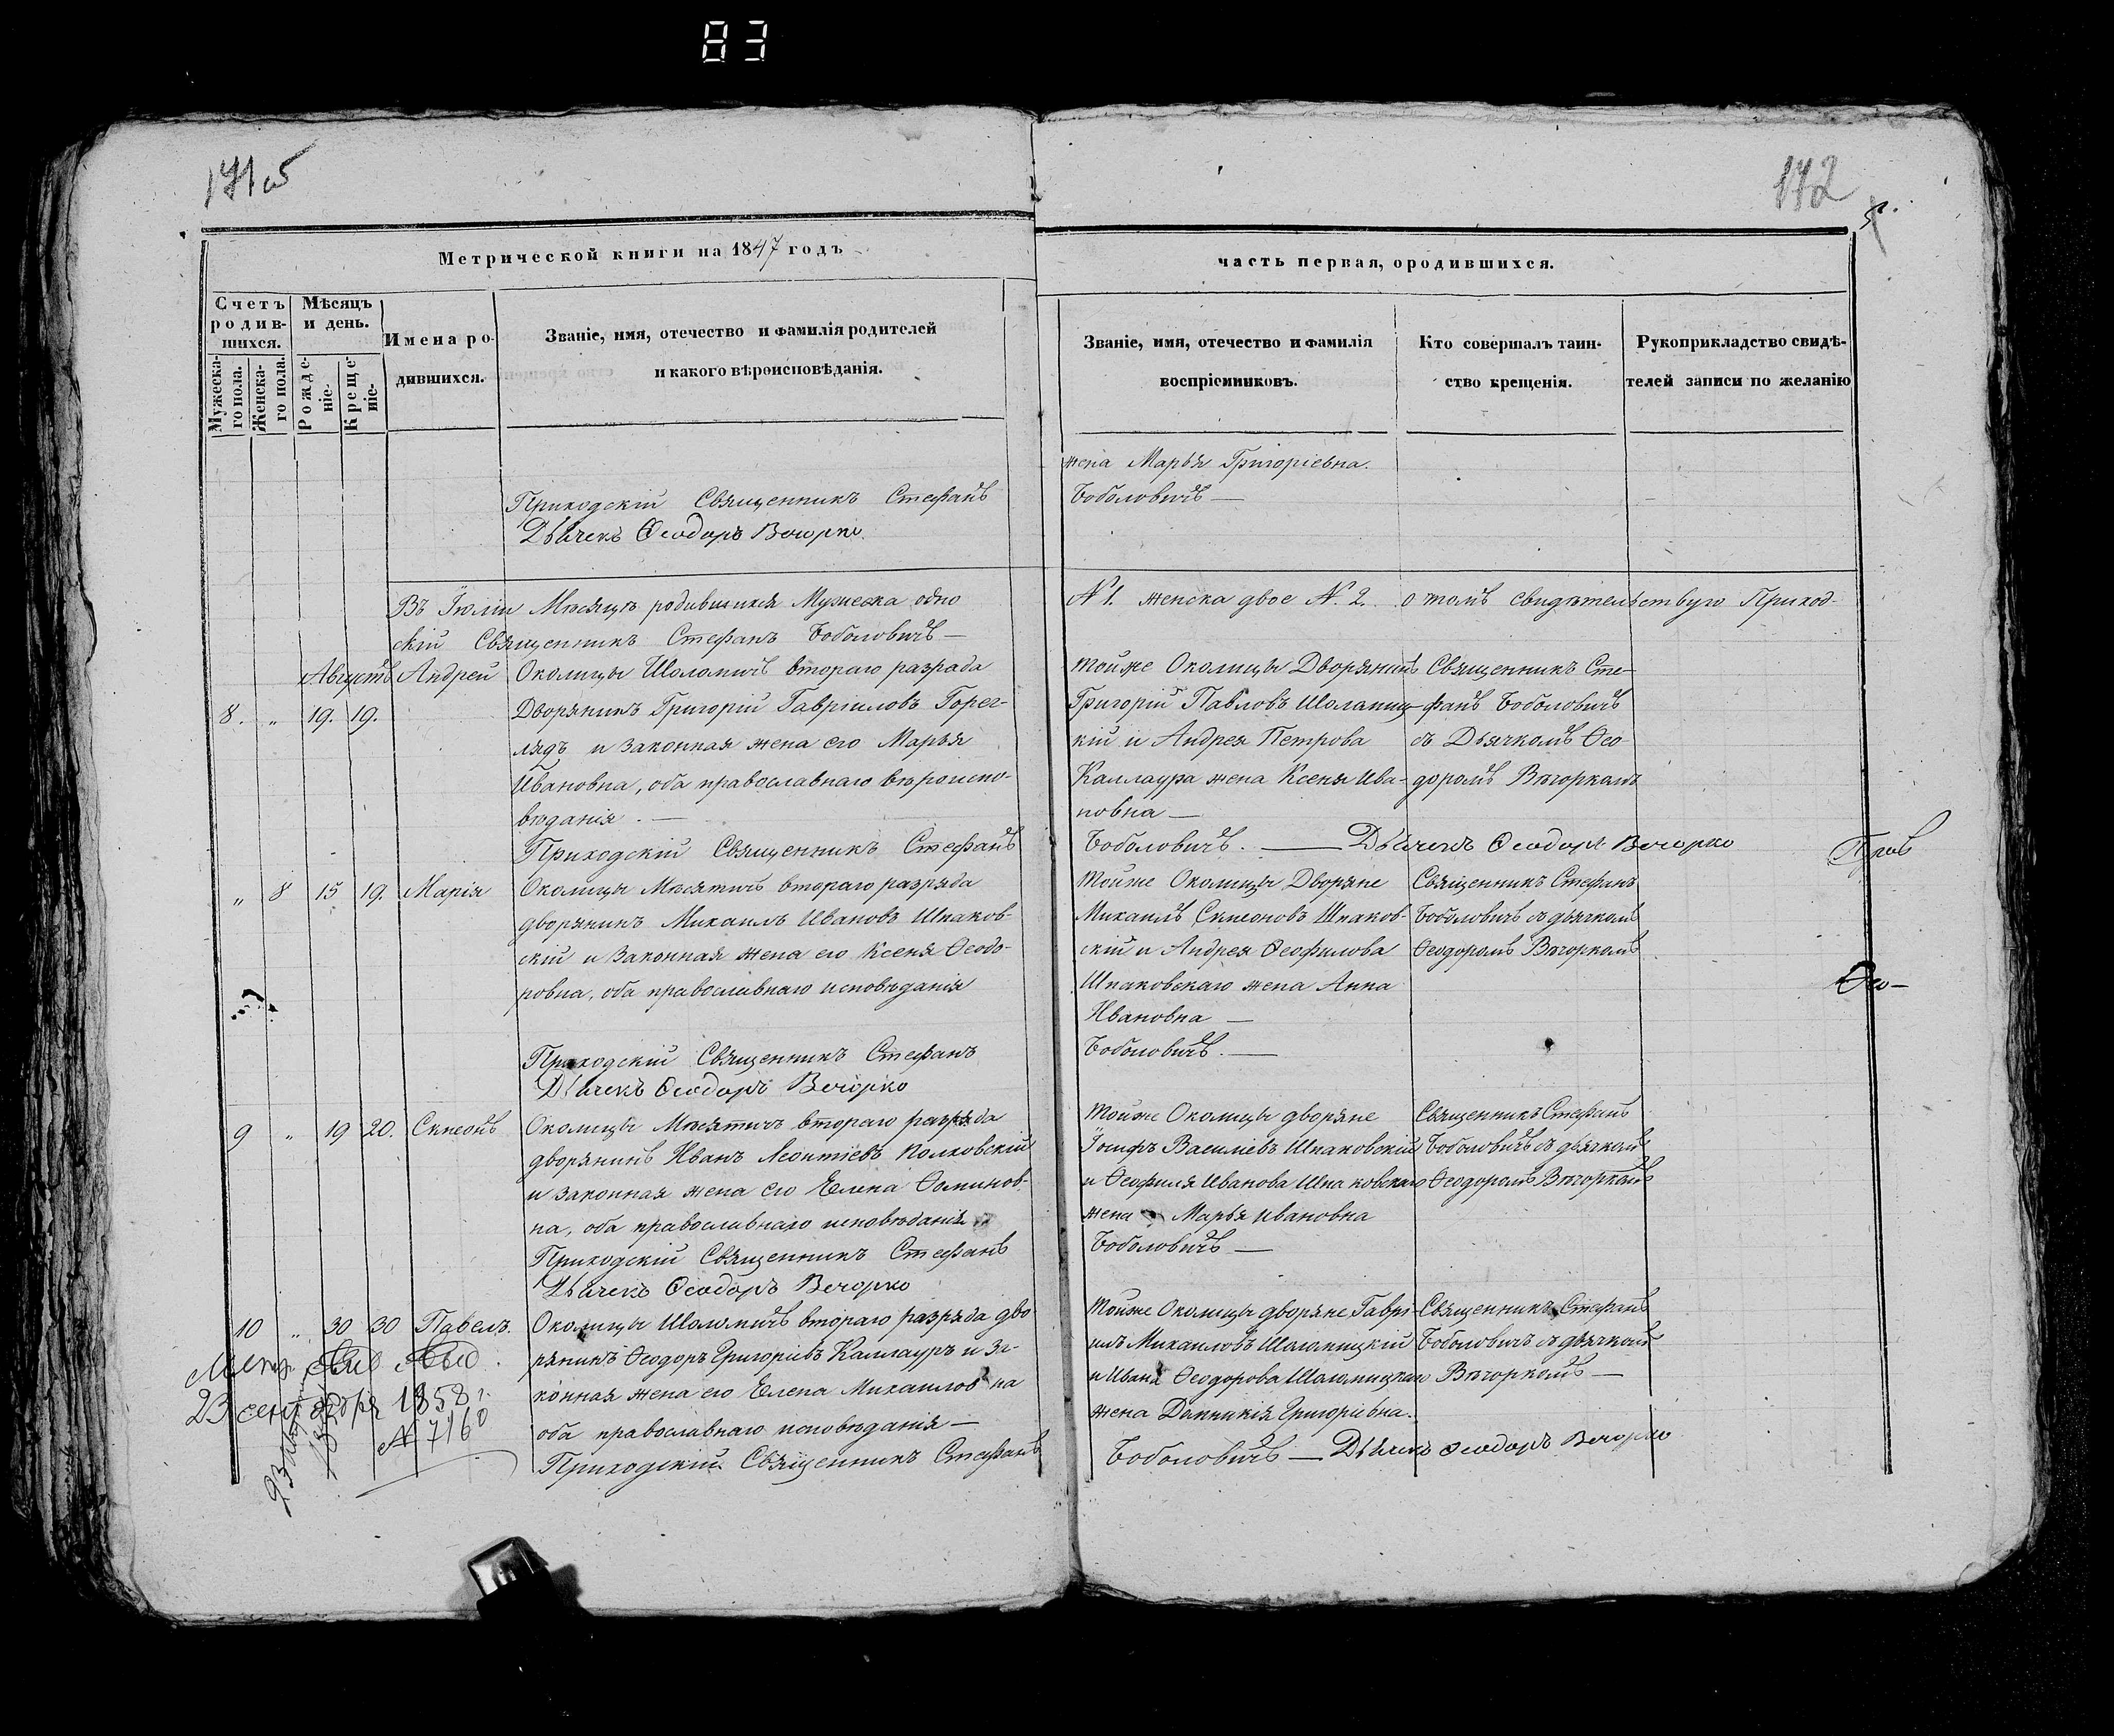 83
171 об
172
Метрической книги на 1847 годъ
часть первая, ородившихся.
Счетъ родив-шихся.
Мѣсяцъ и день.
Мужеска-го пола.
Женска-го пола.
Рожде-ніе.
Креще-ніе.
Имена ро-
дившихся.
Званіе, имя, отечество и фамилія родителей
и какого вѣроисповѣданія.
Званіе, имя, отечество и фамилія
воспріемниковъ.
Кто совершалъ таин-
ство крещенія.
Рукоприкладство свидѣ-
телей записи по желанію
жена Марья Григоріевна.
Приходскій Священникъ Стефанъ
Боболовичъ —
Дьячекъ Ѳеодоръ Вечорко
Въ Іюлѣ Мѣсяцѣ родившихся Мужеска одно
№ 1. женска двое №. 2. о томъ свидѣтельствую Приход-
скій Священникъ Стефанъ Боболовичъ —
Августъ
8. " 19. 19. Андрей
Околицы Шоломичъ втораго разряда
Дворянинъ Григорій Гавріиловъ Горег-
лядъ и законная жена его Марья
Ивановна, оба православнаго вѣроиспо-
вѣданія. —
тойже Околицы Дворянинъ
Григорій Павловъ Шоломиц-
кій и Андрея Петрова
Каллаура жена Ксеня Ива-
новна —
Священникъ Сте-
фанъ Боболовичъ
съ Дьячкомъ Ѳео-
доромъ Вѣчоркомъ
Приходскій Священникъ Стефанъ
Боболовичъ. — Дьячекъ Ѳеодоръ Вечорко
" 8 15 19. Марія
Околицы Мѣсятичъ втораго разряда
дворянинъ Михаилъ Ивановъ Шпаков-
скій и законная жена его Ксеня Ѳеодо-
ровна, оба православнаго исповѣданія
Тойже Околицы Дворяне
Михаилъ Симеоновъ Шпаков-
скій и Андрея Ѳеофилова
Шпаковскаго жена Анна
Ивановна —
Священникъ Стефанъ
Боболовичъ съ дьячкомъ
Ѳеодоромъ Вѣчоркомъ
Приходскій Священникъ Стефанъ
Боболовичъ. —
Дьячекъ Ѳеодоръ Вечорко
9 " 19 20. Симеонъ
Околицы Мѣсятичъ втораго разряда
дворянинъ Иванъ Леонтіевъ Полховскій
и законная жена его Елена Ѳоминов-
на, оба православнаго исповѣданія
тойже Околицы дворяне
Іосифъ Василіевъ Шпаковскій
и Ѳеофиля Иванова Шпаковскаго
жена Марья Ивановна
Священникъ Стефанъ
Боболовичъ съ дьячкомъ
Ѳеодоромъ Вѣчоркомъ
Приходскій Священникъ Стефанъ
Боболовичъ —
Дьячекъ Ѳеодоръ Вечорко
10 " 30 30 Павелъ.
Околицы Шоломичъ втораго разряда дво-
рянинъ Ѳеодоръ Григоріевъ Каллауръ и за-
конная жена его Елена Михаиловна
оба православнаго исповѣданія —
Тойже Околицы дворяне Гаври-
илъ Михаиловъ Шоломицкій
и Ивана Ѳеодорова Шоломицкаго
жена Домникія Григоріевна.
Священникъ Стефанъ
Боболовичъ съ дьячкомъ
Вѣчоркомъ —
Приходскій Священникъ Стефанъ
Боболовичъ — Дьячекъ Ѳеодоръ Вечорко
23 сентября 1858 г.
№ 7160
Ѳео-